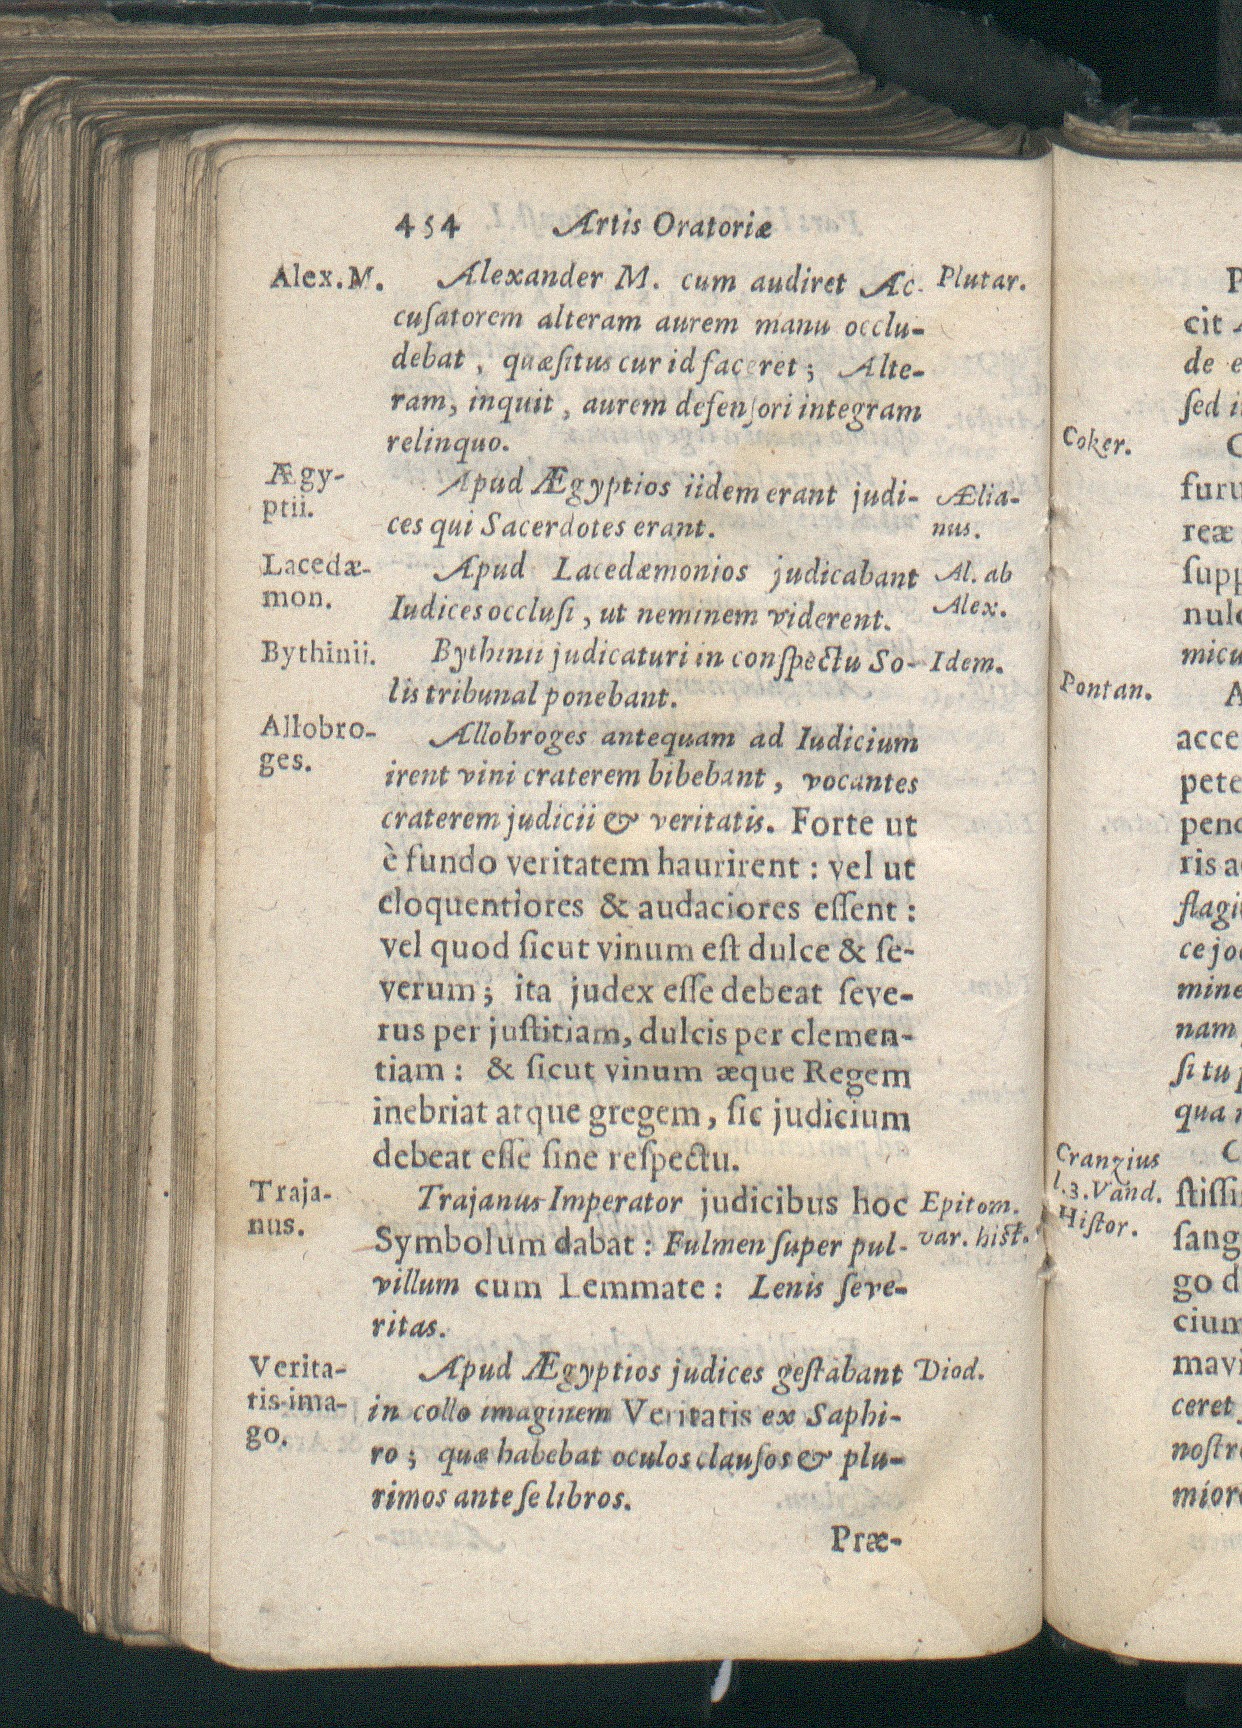 454 Artis Oratoriæ
Alex. M. Alexander M. cum audiret Ac- Plutar.
cuſatorem alteram aurem manu occlu-
debat, quæſitus cur id faceret; Alte-
ram, inquit, aurem defenſori integram
relinquo.
Ægy-
ptii.
Apud Ægyptios iidem erant judi-
ces qui Sacerdotes erant.
Ælia-
nus.
Lacedæ-
mon.
Apud Lacedæmonios judicabant
Iudices occluſi, ut neminem viderent.
Al. ab
Alex.
Bythinii. Bythinii judicaturi in conſpectu So- Idem.
lis tribunal ponebant.
Allobro-
ges.
Allobroges antequam ad Iudicium
irent vini craterem bibebant, vocantes
craterem judicii & veritatis. Forte ut
è fundo veritatem haurirent: vel ut
eloquentiores & audaciores eſſent:
vel quod ſicut vinum eſt dulce & ſe-
verum; ita judex eſſe debeat ſeve-
rus per juſtitiam, dulcis per clemen-
tiam: & ſicut vinum æque Regem
inebriat atque gregem, ſic judicium
debeat eſſe ſine reſpectu.
Traja-
nus.
Trajanus Imperator judicibus hoc
Symbolum dabat: Fulmen ſuper pul-
villum cum Lemmate: Lenis ſeve-
ritas.
Epitom.
var. hiſt.
Verita-
tis ima-
go.
Apud Ægyptios judices geſtabant
in collo imaginem Veritatis ex Saphi-
ro; quæ habebat oculos clauſos & plu-
rimos ante ſe libros.
Diod.
Præ-
Coker.
Pontan.
Cranzius
l. 3. Vand.
Hiſtor.
P
cit
de e
ſed i
C
furu
reæ
ſupp
nulo
micu
A
acce
pete
pend
ris a
flagi
ce jo
mine
nam
ſi tu
qua
C
ſtiſſi
ſang
go d
cium
mavi
ceret
noſtr
mior